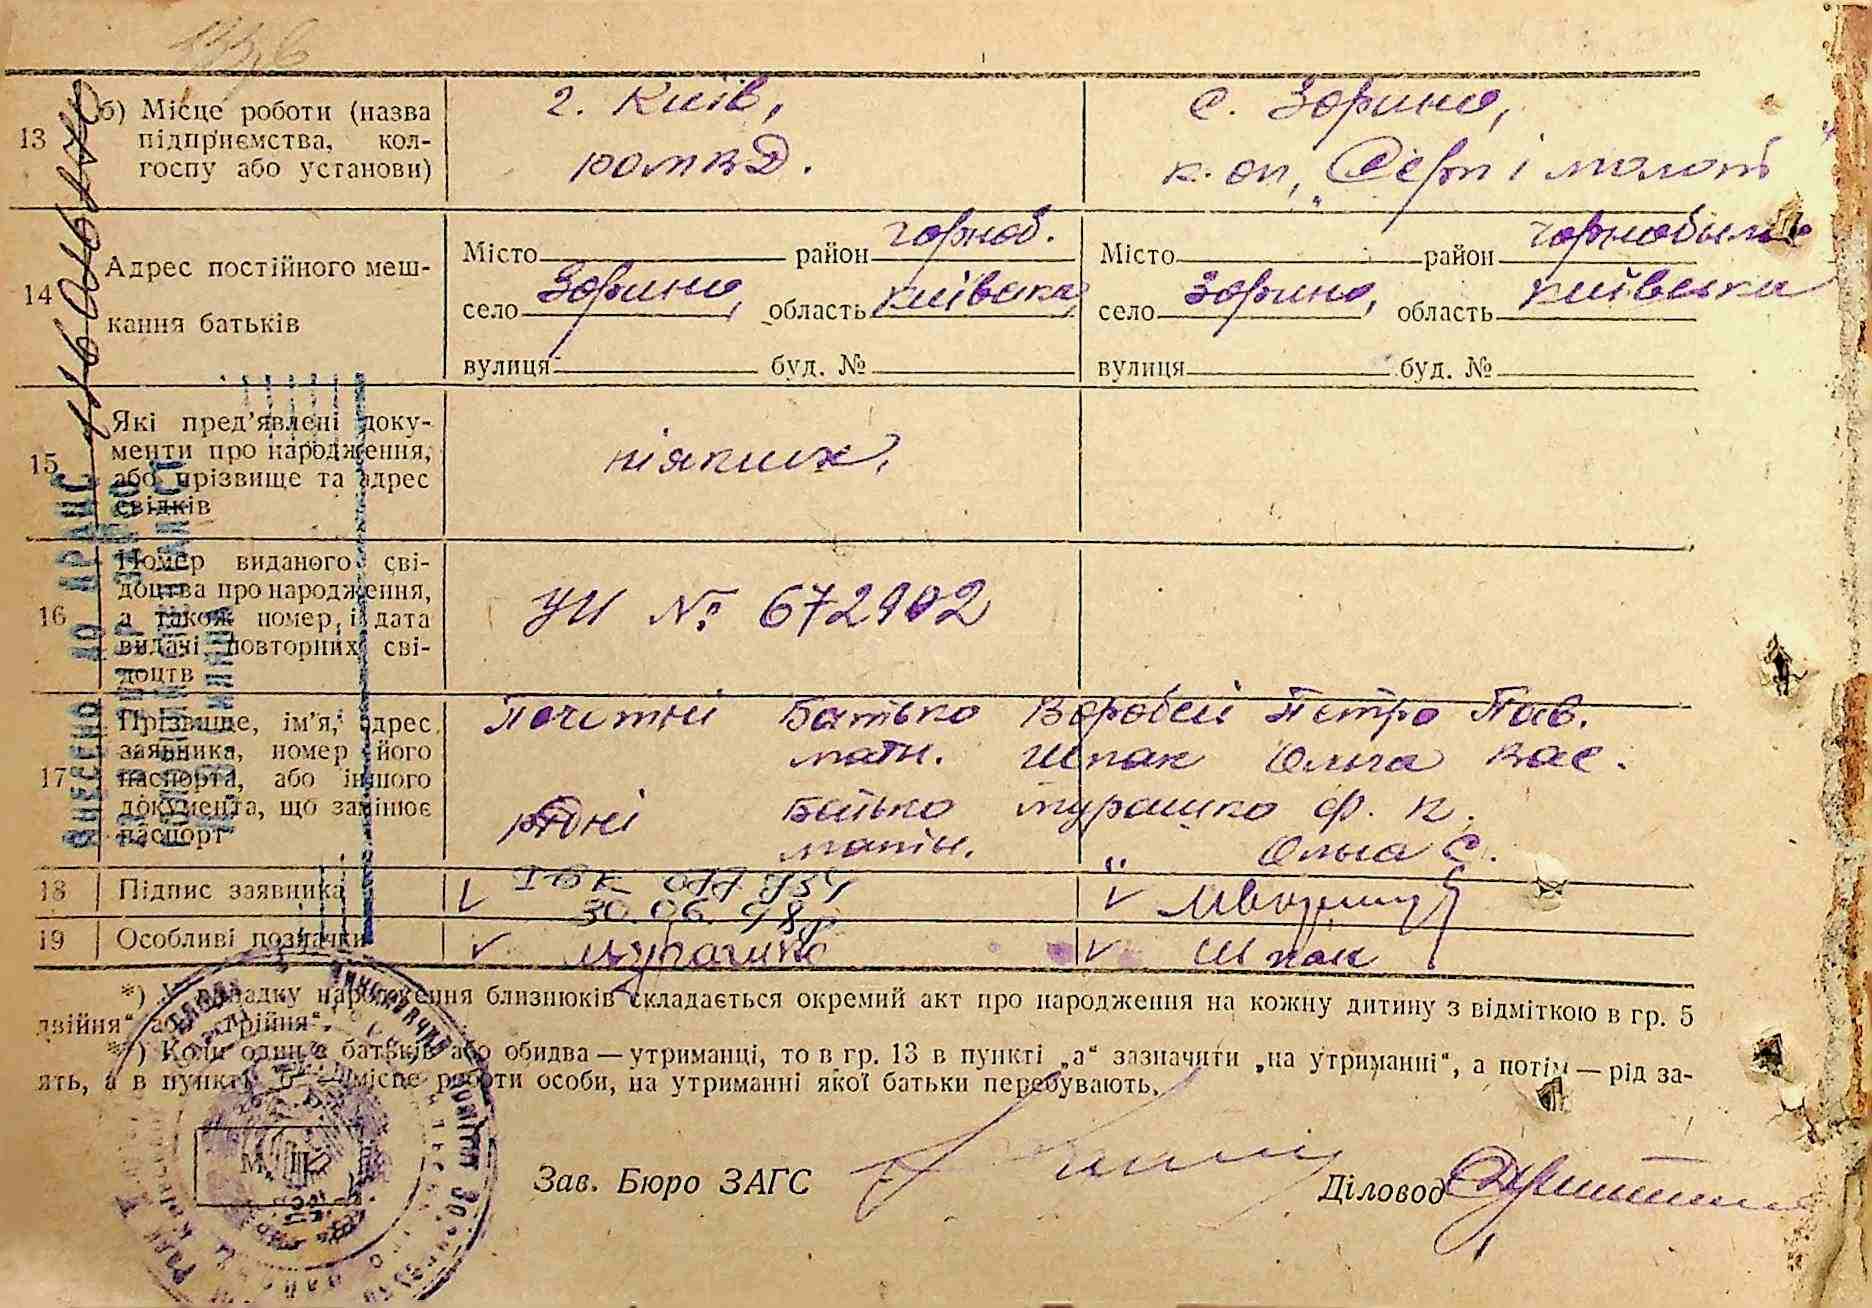 13
б) Місце роботи (назва
підприємства, кол-
госпу або установи)
г. Київ,
с. Зорино,
к. оп, „Серп і молот"
14
Адрес постійного меш-
кання батьків
Місто район Чорноб.
село Зорино, область Київська
вулиця буд. №
Місто район Чорнобильс
село Зорино, область Київська
вулиця буд. №
15
Які пред'явлені доку-
менти про народження,
або прізвище та адрес
свідків
ніяких.
16
Номер виданого сві-
доцтва про народження,
а також номер і дата
видачі повторних сві-
доцтв
УИ № 672902
17
Прізвище, ім'я, адрес
заявника, номер його
паспорта, або іншого
документа, що замінює
паспорт
Почотні Батько Воробей Петро Пав.
мати. Шпак Ольга Вас.
рідні Батько Мурашко Ф. К.
матін. " Ольга С.
18
Підпис заявника
30.06.98р
19
Особливі позначки
Мурашко
Шпак
*) У випадку народження близнюків складається окремий акт про народження на кожну дитину з відміткою в гр. 5
„двійня" або „трійня".
**) Коли один з батьків або обидва — утриманці, то в гр. 13 в пункті „а" зазначити „на утриманні", а потім — рід за-
нять, а в пункті „б" — місце роботи особи, на утриманні якої батьки перебувають.
М. П.
Зав. Бюро ЗАГС
Діловод
ВНЕСЕНО ДО ДРАЦС